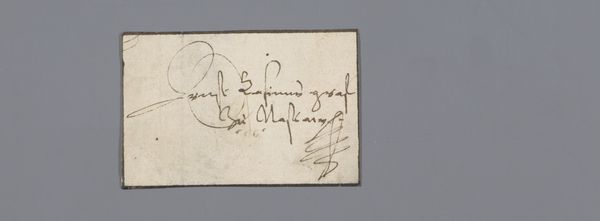 Ernst Casimir graf
Zu Nassaw